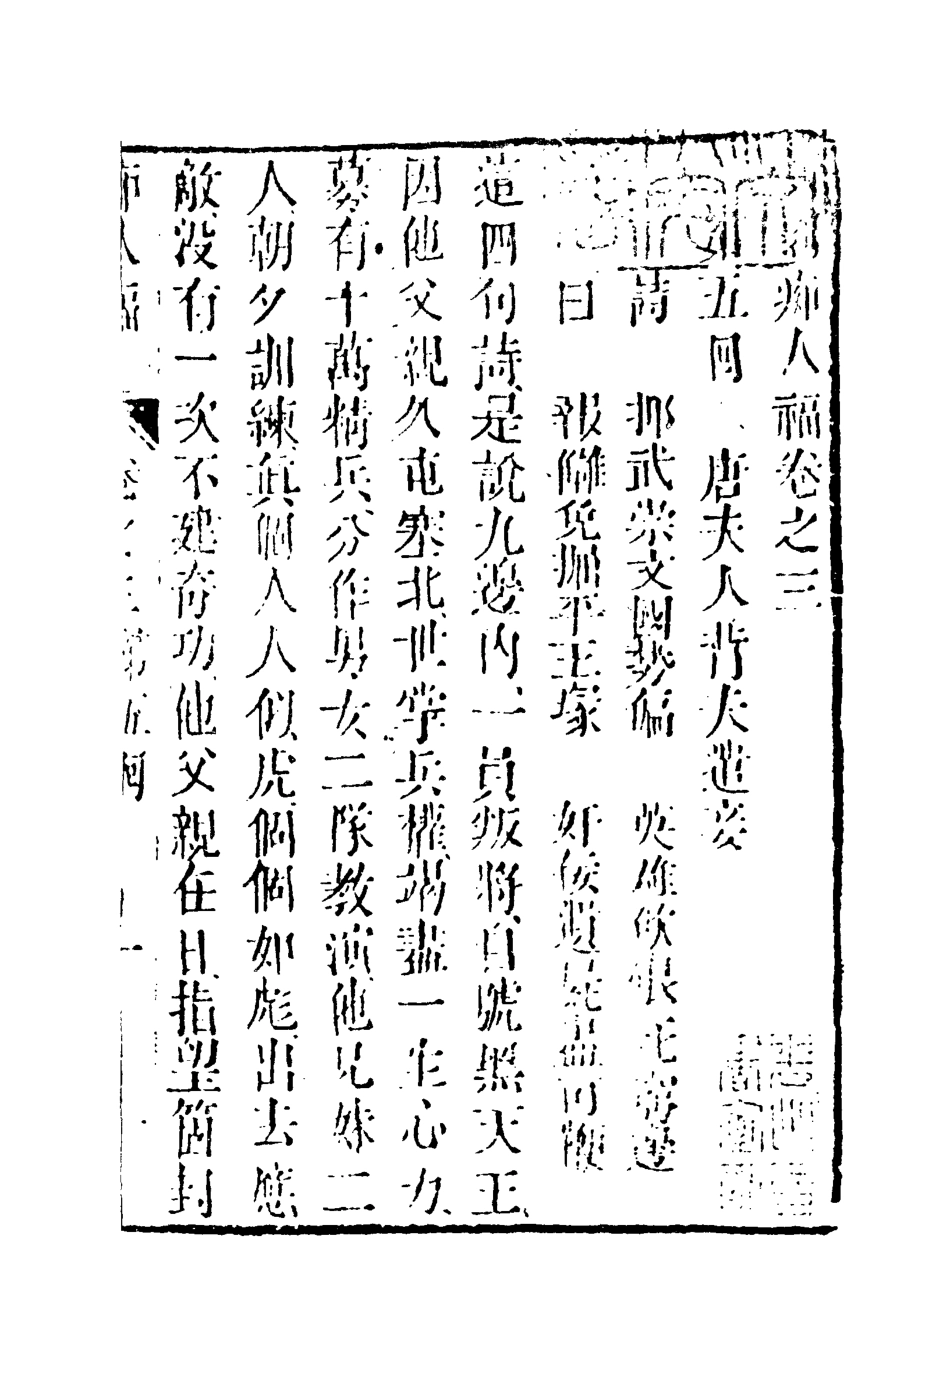 痴人福卷之三
五回 唐夫人背夫遣妾
詩 抑武崇文國勢偏 英雄飲恨走窮邊
曰 報讎兔掘平王塚 奸佞遺屍盡可鞭
這四句詩是說九邊內一員叛將自號黑天王
因他父親久屯塞北世掌兵權竭盡一生心力
募有十萬精兵分作男女二隊教演他兄妹二
人朝夕訓練真個人人似虎個個如彪出去應
敵没有一次不建奇功他父親在日指望箇封
卷之三 第五回